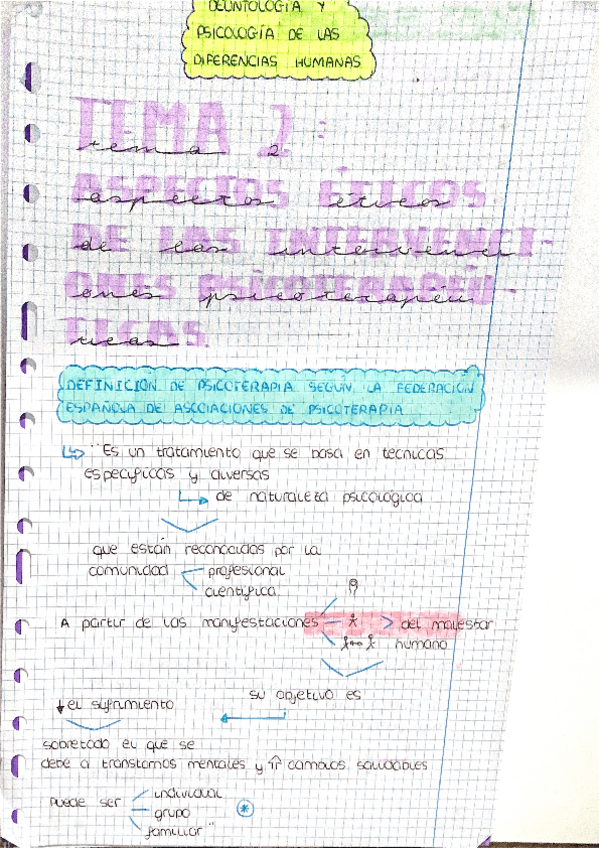 DEONTOLOGÍA Y
PSICOLOGÍA DE LAS
DIFERENCIAS HUMANAS
TEMA 2:
tema 2
ASPECTOS ÉTICOS
aspectos éticos
DE LAS INTERVENCI-
de las intervenci
ONES PSICOTERAPÉU-
ones psicoterapéu
TICAS.
ticas
DEFINICIÓN DE PSICOTERAPIA SEGÚN LA FEDERACIÓN
ESPAÑOLA DE ASOCIACIONES DE PSICOTERAPIA
↳ "Es un tratamiento que se basa en técnicas
específicas y diversas
↳ de naturaleza psicológica
que están reconocidas por la
comunidad profesional
científica
A partir de las manifestaciones > del malestar
humano
su objetivo es
↓ el sufrimiento
sobretodo el que se
debe a transtornos mentales y ⇑ cambios saludables
Puede ser individual
grupo *
familiar"